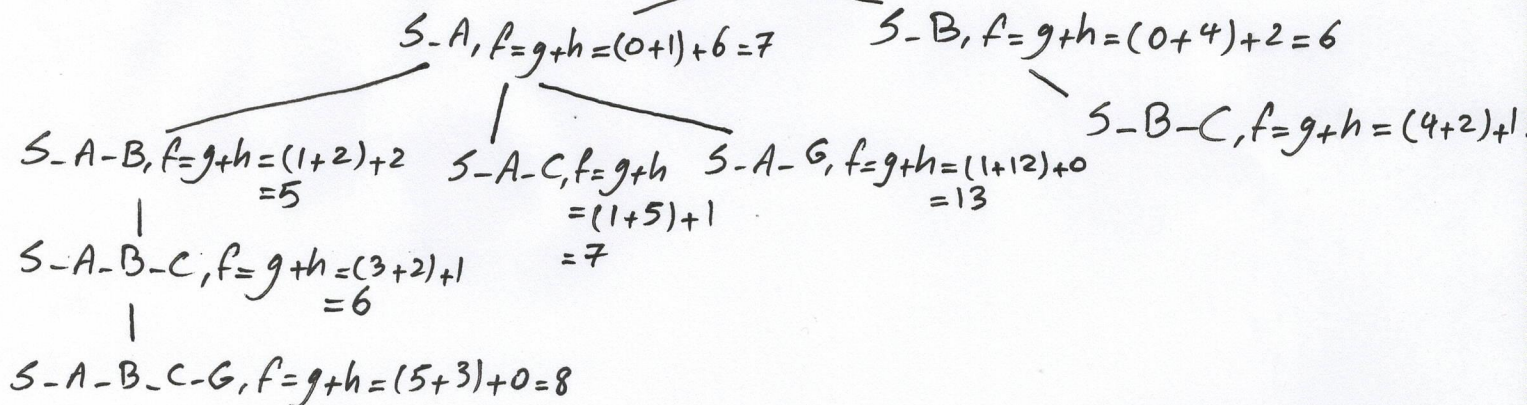 S-A, f=g+h=(0+1)+6=7
S-B, f=g+h=(0+4)+2=6
S-B-C, f=g+h=(4+2)+1
S-A-B, f=g+h=(1+2)+2
=5
S-A-C, f=g+h
=(1+5)+1
=7
S-A-G, f=g+h=(1+12)+0
=13
S-A-B-C, f=g+h=(3+2)+1
=6
S-A-B-C-G, f=g+h=(5+3)+0=8